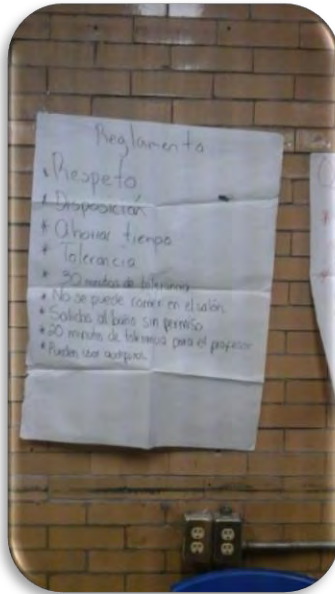 Reglamento
* Respeto
* Disposición
* Ahorrar tiempo
* Tolerancia
* 30 minutos de tolerancia
* No se puede comer en el salón
* Salidas al baño sin permiso
* 20 minutos de tolerancia para el profesor
* Pueden usar